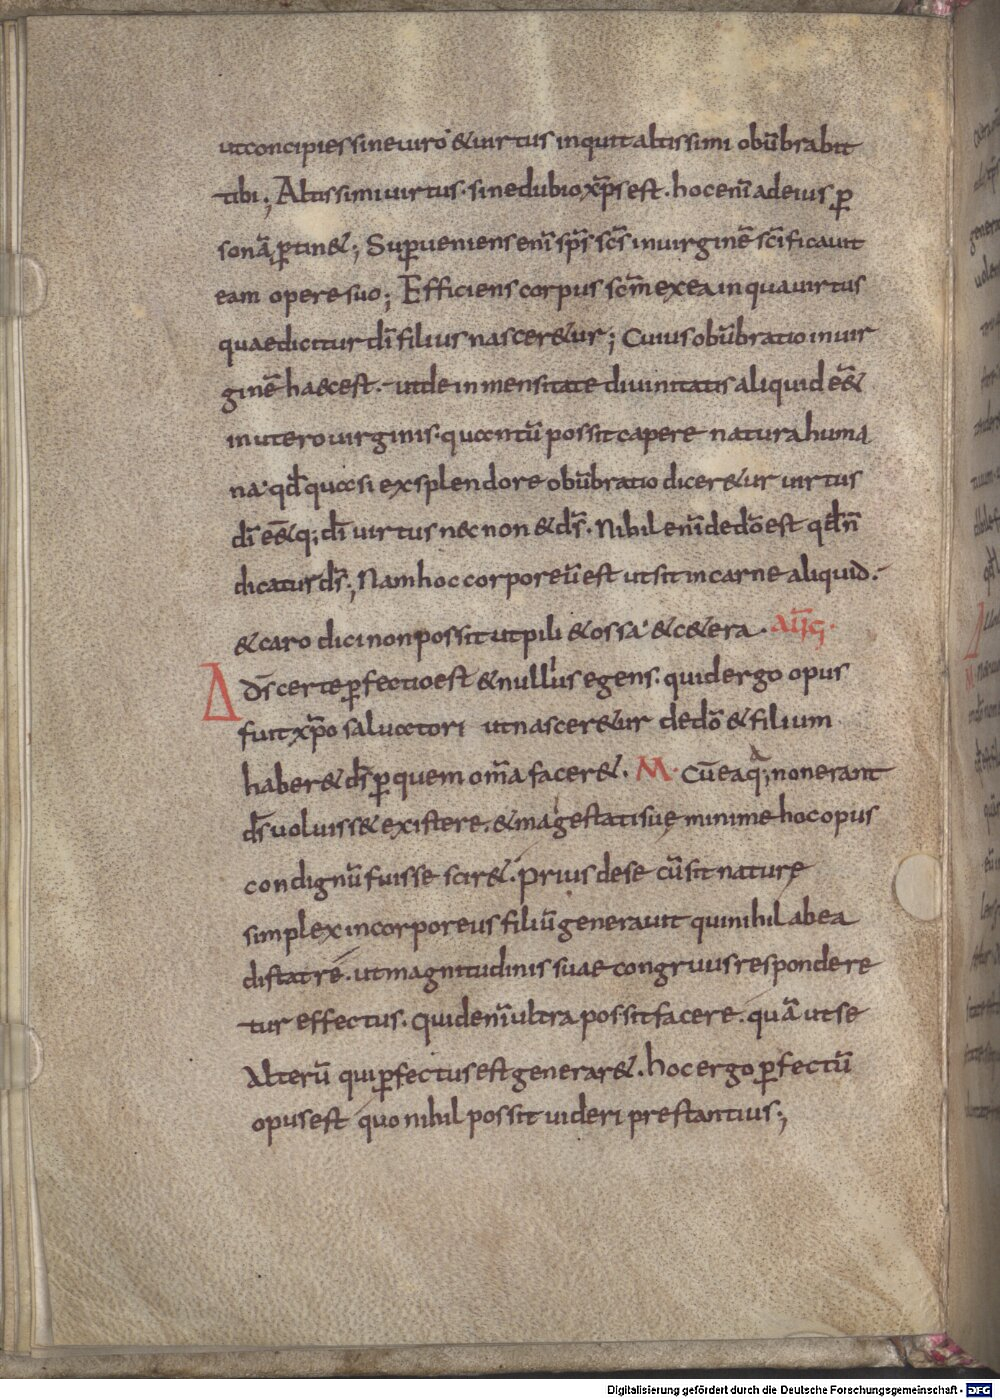 ut concipies sine uiro & uirtus inquit altissimi obūbrabit
tibi; Altissimi uirtus· sine dubio xp̄s est· hoc enī ad eius ꝑ
sonā ꝑtin&; Suꝑueniens enī sp̄s sc̄s in uirginē sc̄ificauit
eam opere suo; Efficiens corpus sc̄m ex ea in qua uirtus
quae dicitur dī filius nascer&ur; Cuius obūbratio in uir
ginē haec est· ut de inmensitate diuinitatis aliquid eē&
in utero uirginis· quantū possit capere natura huma
na· qđ quasi ex splendore obūbratio dicer&ur uirtus
dī eē&q; dī uirtus nec non & ds̄· Nihil enī de dō est qđ n̄
dicatur ds̄; Nam hoc corporeū est ut sit in carne aliquid·
& caro dici non possit ut pili & ossa & c&era· AUG·
A ds̄ certe ꝑfectio est & nullius egens· quid ergo opus
fuit xp̄o saluatori ut nascer&ur de dō & filium
haber& ds̄ ꝑ quem om̄a facer&· M· Cū ea q; non erant
ds̄ uoluiss& existere· & magestatis suę minime hoc opus
condignū fuisse scir&· prius de se cū sit naturę
simplex incorporeus filiū generauit qui nihil ab ea
distat re· ut magnitudinis suae congruus respondere
tur effectus· quid enī ultra possit facere· quā ut se
Alterū qui ꝑfectus est generar&· hoc ergo ꝑfectū
opus est quo nihil possit uideri prestantius;
Digitalisierung gefördert durch die Deutsche Forschungsgemeinschaft - DFG